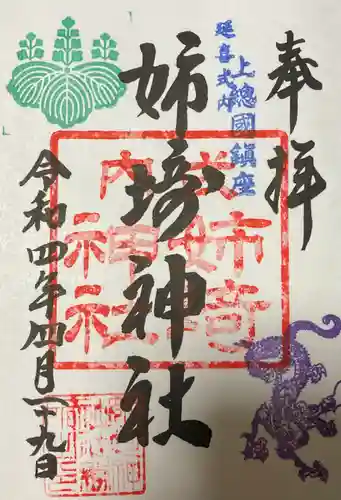 奉拝
延喜式内
上總國鎮座
姉埼神社
式内
姉埼
神社
令和四年四月二十九日